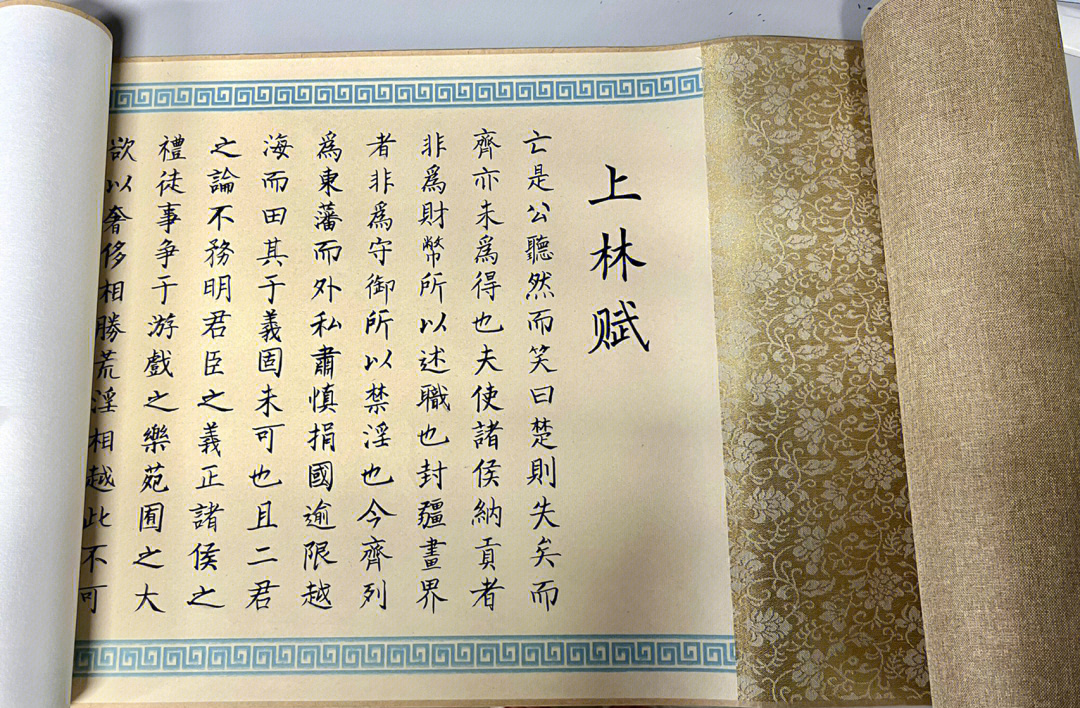 上林赋
亡是公聽然而笑曰楚則失矣而
齊亦未爲得也夫使諸侯納貢者
非爲財幣所以述職也封疆畫界
者非爲守御所以禁淫也今齊列
爲東藩而外私肅慎捐國逾限越
海而田其于義固未可也且二君
之論不務明君臣之義正諸侯之
禮徒事争于游戲之樂苑囿之大
欲以奢侈相勝荒淫相越此不可